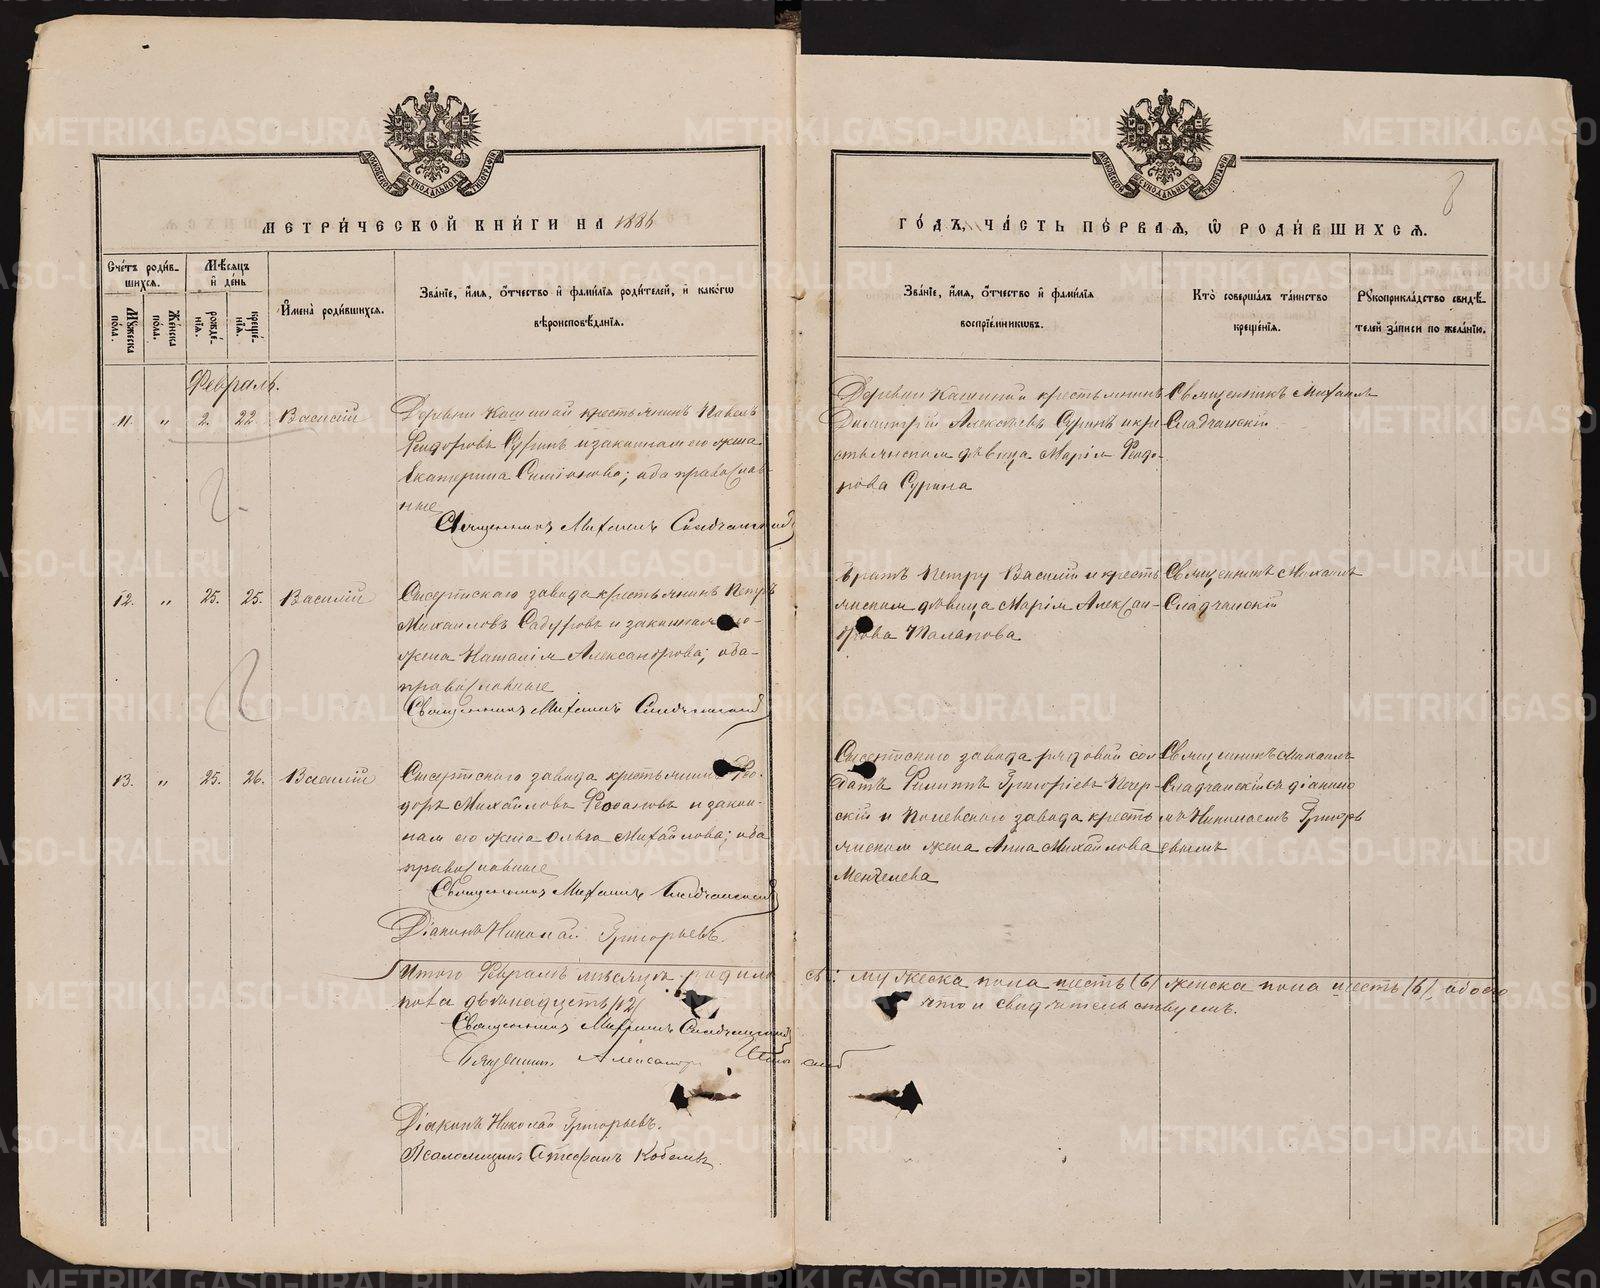 МЕТРИ́ЧЕСКОЙ КНИ́ГИ НА 1886
Сче́тъ роди́в-
шихся.
Мѣ́сяцъ
и҆ де́нь
Му́жеска
по́ла.
Же́нска
по́ла.
рожде́-
нїя.
креще́-
нїя.
И҆мена̀ роди́вшихся.
Зва́нїе, и҆́мя, ѻ҆́тчество и҆ фами́лїя роди́телей, и҆ како́гѡ
вѣроисповѣ́данїя.
Февраль.
11. " 2. 22. Василій
Деревни Кашиной крестьянинъ Павелъ
Феодоровъ Суринъ и законная его жена
Екатерина Симіонова; оба православ-
ные
Священникъ Михаилъ Сладчанский
12. " 25. 25. Василій
Сысертскаго завода крестьянинъ Петръ
Михаиловъ и законная
жена Наталія Александрова; оба
православные
Священникъ Михаилъ Сладчанский
13. " 25. 26. Василій
Сысертскаго завода крестьянинъ Фео-
доръ Михайловъ и закон-
ная его жена Ольга Михайлова; оба
православные
Священникъ Михаилъ Сладчанский
Діаконъ Николай Григорьевъ.
Итого Февралѣ мѣсяцѣ родило
пола двѣнадцать /12/
Священникъ Михаилъ Сладчанский
Священникъ Александръ
Діаконъ Николай Григорьевъ.
Псаломщикъ Стефанъ
8
ГО́ДЪ, ЧА́СТЬ ПЕ́РВАЯ, Ѡ҆ РОДИ́ВШИХСЯ.
Зва́нїе, и҆́мя, ѻ҆́тчество и҆ фами́лїя
воспрїе́мникѡвъ.
Кто̀ соверша́лъ та́инство
креще́нїя.
Рꙋкоприкла́дство свидѣ́-
телей за́писи по жела́нїю.
Деревни Кашиной крестьянинъ
Димитрій Алексѣевъ Суринъ и кре-
стьянская дѣвица Марія Феодо-
рова Сурина
Священникъ Михаилъ
Сладчанскій
Братъ Петру Василій и кресть
янская дѣвица Марія Алексан-
дрова
Священникъ Михаилъ
Сладчанскій
Сысертскаго завода рядовой сол
датъ Филиппъ Григоріевъ Печер-
скій и Полевскаго завода кресть
янская жена Анна Михайлова
Менчелева
Священникъ Михаилъ
Сладчанскій съ діакono
мъ Николаемъ Григорь
евымъ
сь: мужеска пола шесть (6) женска пола шесть /6/, обоего
что и свидѣтельствуемъ.